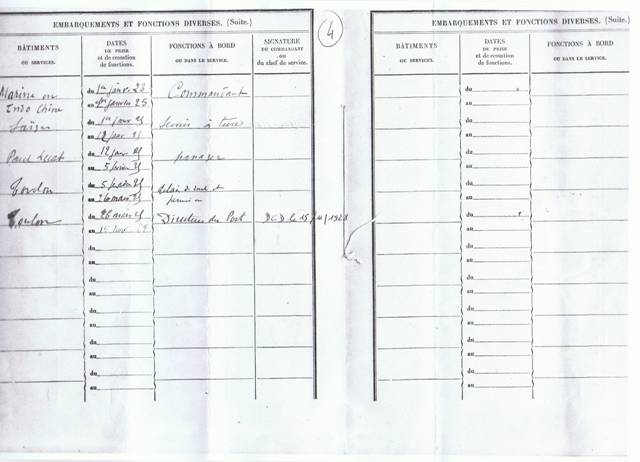 EMBARQUEMENTS ET FONCTIONS DIVERSES. (Suite.)
BÂTIMENTS
OU SERVICES.
DATES
DE PRISE
et de cessation
de fonctions.
FONCTIONS À BORD
OU DANS LE SERVICE.
SIGNATURE
DU COMMANDANT
OU
du chef de service.
Marine en
Indo Chine
du 1er janvr 23
au 1er janvier 25
Commandant
Saïgon
du 1er janv 25
au 12 janv 25
Service à terre
Paul Lecat
du 12 janv 25
au 5 février 25
passager
Toulon
du 5 février 25
au 26 mars 25
délai de route et
Toulon
du 26 mars 25
au 15 nov
Directeur du Port
DCD le 15/11/1928
du
au
du
au
du
au
du
au
du
au
4
EMBARQUEMENTS ET FONCTIONS DIVERSES. (Suite.)
BÂTIMENTS
OU SERVICES.
DATES
DE PRISE
et de cessation
de fonctions.
FONCTIONS À BORD
OU DANS LE SERVICE.
du
au
du
au
du
au
du
au
du
au
du
au
du
au
du
au
du
au